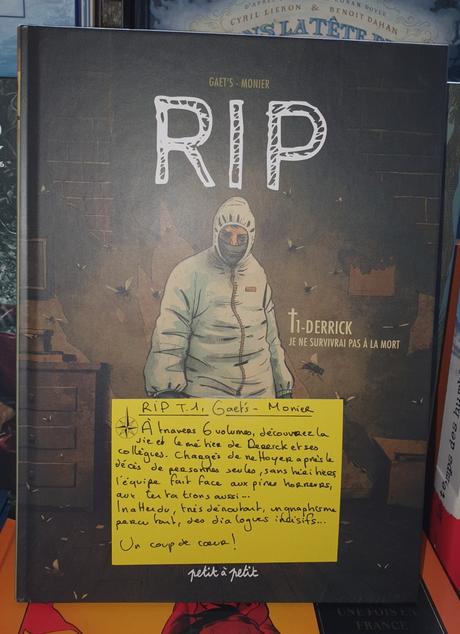 D'APRÈS CONAN DOYLE
CYRIL LIERON & BENOIT DAHAN
DANS LA TÊTE DE
GAET'S - MONIER
RIP
†1-DERRICK
JE NE SURVIVRAI PAS À LA MORT
RIP T.1, Gaet's - Monier
À travers 6 volumes, découvrez la
vie et le métier de Derrick et ses
collègues. Chargés de nettoyer après le
décès de personnes seules, sans héritiers
l'équipe fait face aux pires horreurs,
aux tentations aussi...
Inattendu, très déroutant, un graphisme
percutant, des dialogues incisifs...
Un coup de cœur !
petit à petit
UNE FOIS EN
FRANCE